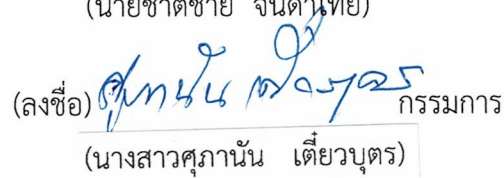 (นายชาติชาย จินดาไทย)
(ลงชื่อ) ศุภานัน เตี๋ยวบุตร กรรมการ
(นางสาวศุภานัน เตี๋ยวบุตร)